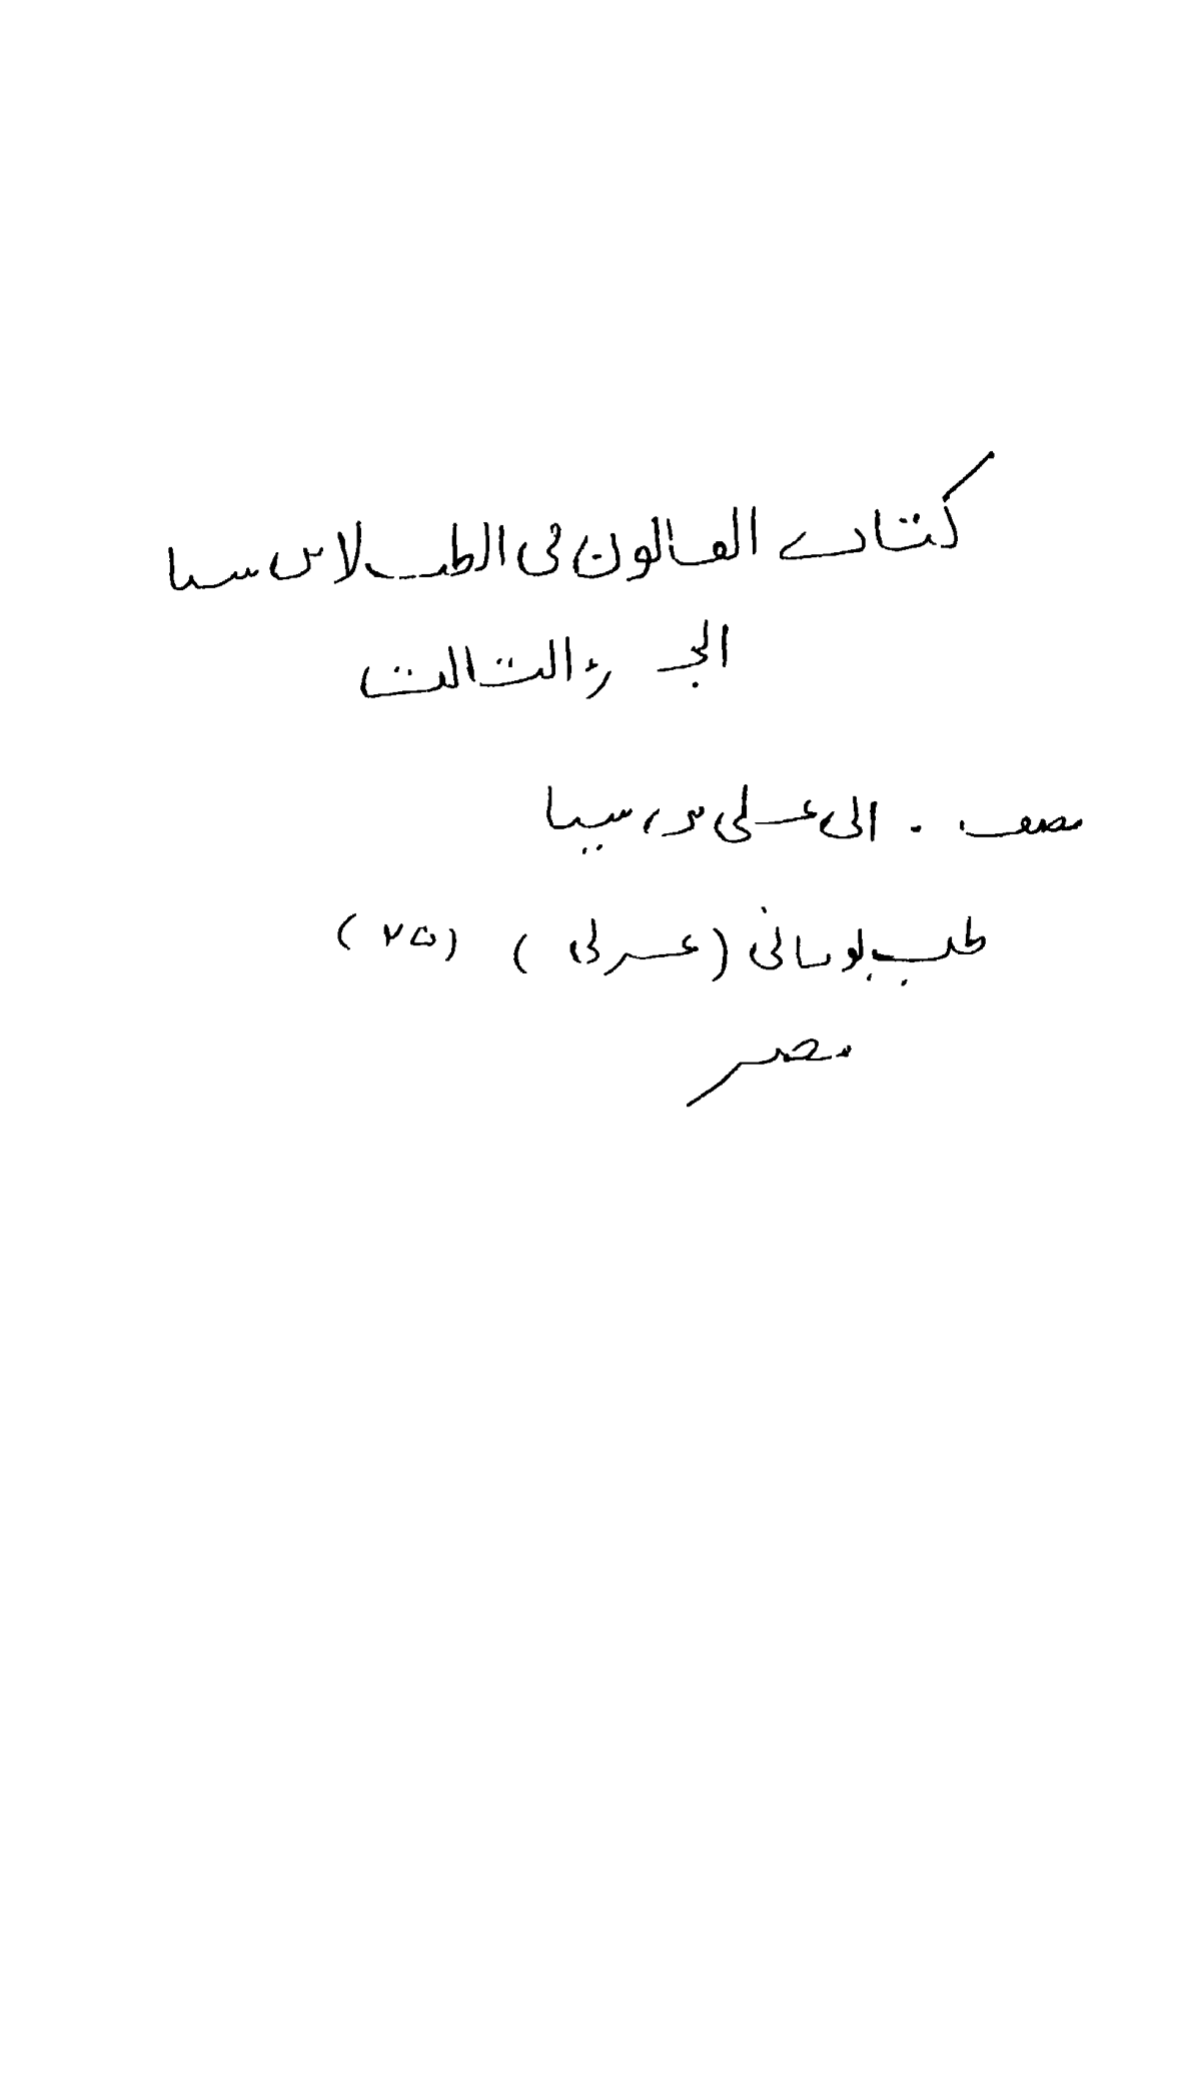 كتاب القانون فى الطب لابن سينا
الجزء الثالث
مصنف . ابى على بن سينا
طب يونانى (عربى) (٢٥)
مصر